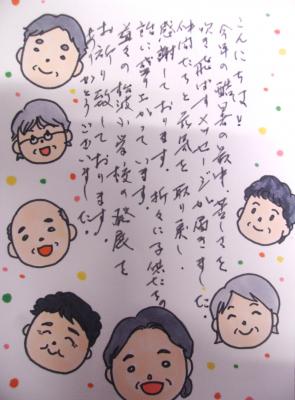 こんにちは!
今年の酷暑の最中、暑さを
吹き飛ばすメッセージが届きました。
仲間たちと元気を取り戻し、
感謝しております。折々に子供たちの
話に盛り上がっています。
益々の松波小学校の発展を
お祈り致しております。
ありがとうございました